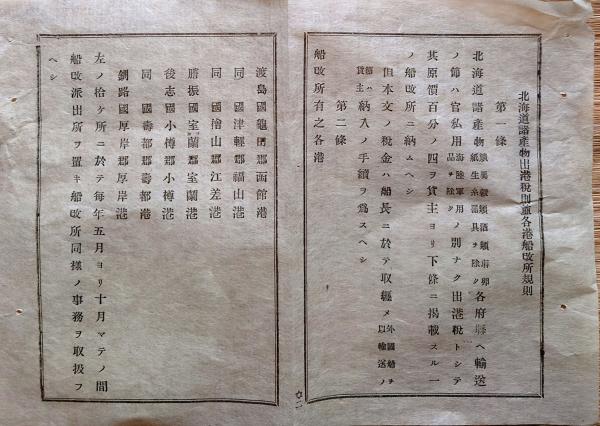 北海道諸產物出港稅則並各港船改所規則
第一條
北海道諸產物各府縣ヘ輸送
ノ節ハ官私用海陸軍用ノ品ヲ除クノ別ナク出港稅トシテ
其原價百分ノ四ヲ貨主ヨリ下條ニ揭載スル一
ノ船改所ニ納ムヘシ
但本文ノ稅金ハ船長ニ於テ取纒メ外國船ヲ以輸送ノ
節ハ貨主納入ノ手續ヲ爲スヘシ
第二條
船改所有之各港
渡島國龜田郡函館港
同國津輕郡福山港
同國檜山郡江差港
膽振國室蘭郡室蘭港
後志國小樽郡小樽港
同國壽都郡壽都港
釧路國厚岸郡厚岸港
左ノ拾ケ所ニ於テ每年五月ヨリ十月マテノ間
船改派出所ヲ置キ船改所同樣ノ事務ヲ取扱フ
ヘシ